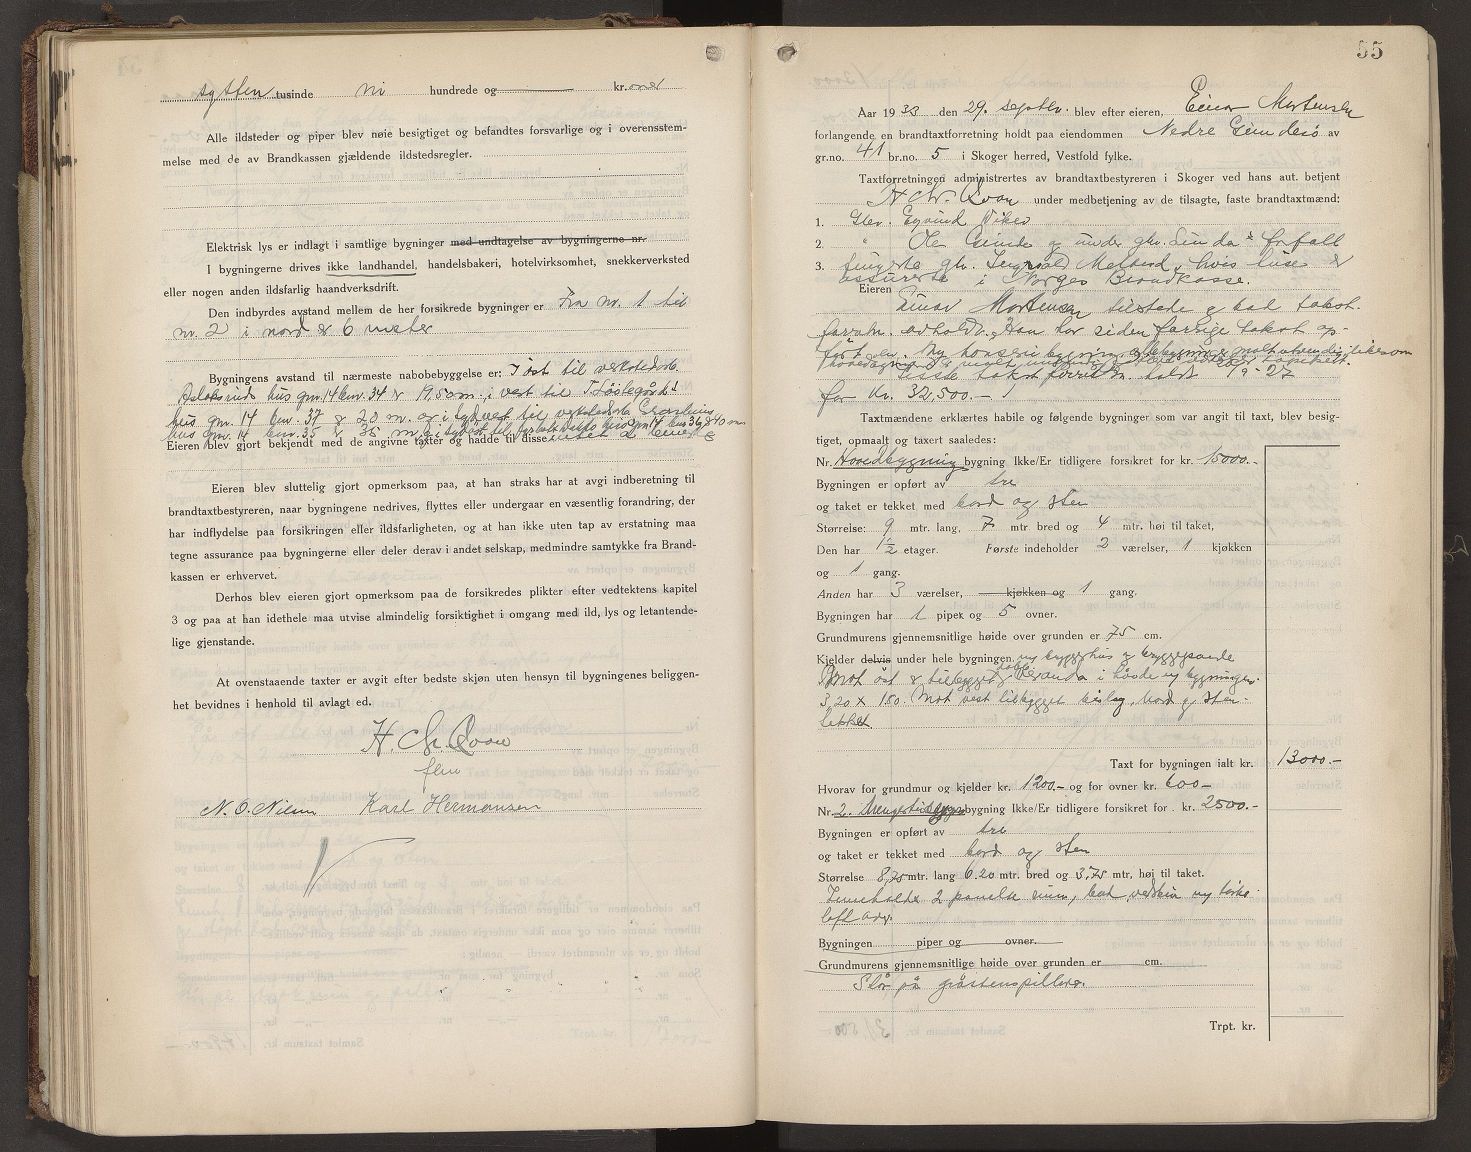 sytten tusinde ni hundrede og kr.oner
Alle ildsteder og piper blev nøie besigtiget og befandtes forsvarlige og i overensstem-
melse med de av Brandkassen gjældende ildstedsregler.
Elektrisk lys er indlagt i samtlige bygninger med undtagelse av bygningerne nr.
I bygningerne drives ikke landhandel, handelsbakeri, hotelvirksomhet, snekkerverksted
eller nogen anden ildsfarlig haandverksdrift.
Den indbyrdes avstand mellem de her forsikrede bygninger er Fra nr. 1 til
nr. 2 i nord er 6 meter
Bygningens avstand til nærmeste nabobebyggelse er: I øst til
hus gnr. 14 bnr. 34 er 19,50 m., i vest til
hus gnr. 14 bnr. 37 er 20 m. og i vest til
hus gnr. 14 bnr. 35 er 35 m. hus gnr. 14 bnr 36, er 40 m
Eieren blev gjort bekjendt med de angivne taxter og hadde til disse intet at bemerke
Eieren blev sluttelig gjort opmerksom paa, at han straks har at avgi indberetning til
brandtaxtbestyreren, naar bygningene nedrives, flyttes eller undergaar en væsentlig forandring, der
har indflydelse paa forsikringen eller ildsfarligheten, og at han ikke uten tap av erstatning maa
tegne assurance paa bygningerne eller deler derav i andet selskap, medmindre samtykke fra Brand-
kassen er erhvervet.
Derhos blev eieren gjort opmerksom paa de forsikredes plikter efter vedtektens kapitel
3 og paa at han idethele maa utvise almindelig forsiktighet i omgang med ild, lys og letantende-
lige gjenstande.
At ovenstaaende taxter er avgit efter bedste skjøn uten hensyn til bygningenes beliggen-
het bevidnes i henhold til avlagt ed.
H. Chr. Qvan
N. O. Nilsen Karl Hermansen
55
Aar 1933 den 29. septbr. blev efter eieren, Einar Mortensen
forlangende en brandtaxtforretning holdt paa eiendommen Nedre av
gr.no. 41 br.no. 5 i Skoger herred, Vestfold fylke.
Taxtforretningen administrertes av brandtaxtbestyreren i Skoger ved hans aut. betjent
H Chr. Qvan under medbetjening av de tilsagte, faste brandtaxtmænd:
1. Gbr. Eyvind Viker
2. " Ole og under gbr. forfall
3. fungerte gbr. hvis huse er
assurerte i Norges Brandkasse.
Eieren Einar Mortensen tilstede og bad takst-
forretn. avholdt. Han har siden forrige takst op-
ført
Siste takstforretn. holdt 1/9-27
for kr. 32,500.-
Taxtmændene erklærtes habile og følgende bygninger som var angit til taxt, blev besig-
tiget, opmaalt og taxert saaledes:
Nr. Hovedbygning bygning Ikke/Er tidligere forsikret for kr. 15000.-
Bygningen er opført av tre
og taket er tekket med bord og sten
Størrelse: 9 mtr. lang, 7 mtr bred og 4 mtr. høi til taket,
Den har 1½ etager. Første indeholder 2 værelser, 1 kjøkken
og 1 gang.
Anden har 3 værelser, kjøkken og 1 gang.
Bygningen har 1 pipek og 5 ovner.
Grundmurens gjennemsnitlige høide over grunden er 75 cm.
Kjelder delvis under hele bygningen m/ bryggerhus og bryggepande
Mot øst er tilbygget veranda i høide m/ bygningen.
3,20 x 1.80. Mot vest tilbygget bislag, bord og sten-
tekket.
Taxt for bygningen ialt kr. 13000.-
Hvorav for grundmur og kjelder kr. 1200.- og for ovner kr. 600.-
Nr. 2. bygning Ikke/Er tidligere forsikret for kr. 2500.-
Bygningen er opført av tre
og taket er tekket med bord og sten
Størrelse 8,75 mtr. lang 6.20 mtr. bred og 3,75 mtr, høj til taket.
Inneholder 2 rum,
loft over
Bygningen piper og ovner.
Grundmurens gjennemsnitlige høide over grunden er cm.
Står på gråstenspillarer.
Trpt. kr.